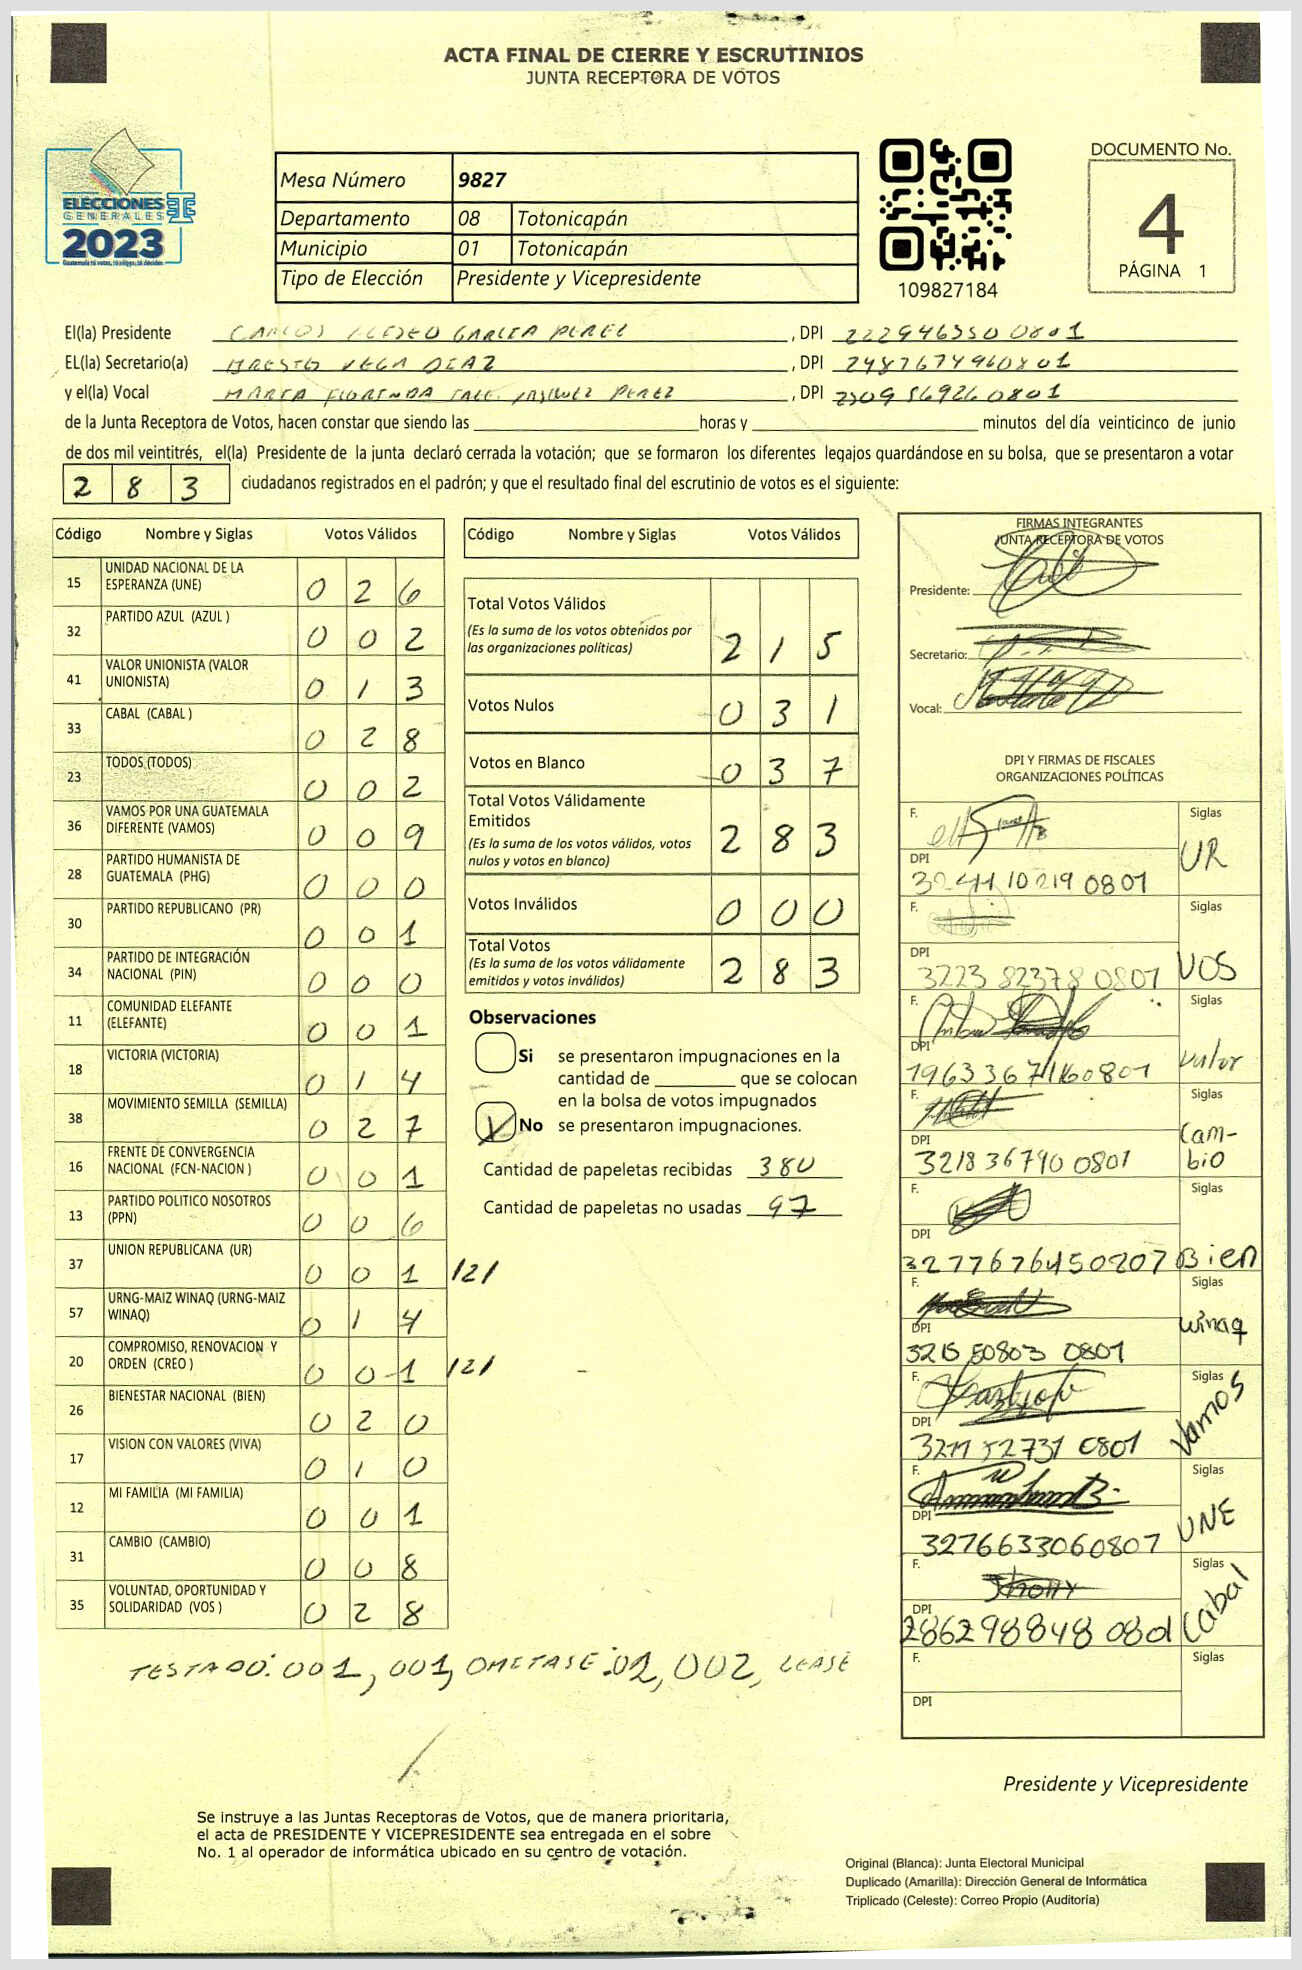 ACTA FINAL DE CIERRE Y ESCRUTINIOS
JUNTA RECEPTORA DE VOTOS
ELECCIONES
GENERALES
2023
Mesa Número 9827
Departamento 08 Totonicapán
Municipio 01 Totonicapán
Tipo de Elección Presidente y Vicepresidente
109827184
DOCUMENTO No.
4
PÁGINA 1
El(la) Presidente CARLOS GARCIA PEREZ, DPI 222946350 0801
EL(la) Secretario(a) VEGA DIAZ, DPI 2487674960801
y el(la) Vocal MARTA FLORINDA PEREZ, DPI 0801
de la Junta Receptora de Votos, hacen constar que siendo las horas y minutos del día veinticinco de junio
de dos mil veintitrés, el(la) Presidente de la junta declaró cerrada la votación; que se formaron los diferentes legajos guardándose en su bolsa, que se presentaron a votar
2 8 3 ciudadanos registrados en el padrón; y que el resultado final del escrutinio de votos es el siguiente:
Código Nombre y Siglas Votos Válidos
15 UNIDAD NACIONAL DE LA ESPERANZA (UNE) 0 2 6
32 PARTIDO AZUL (AZUL ) 0 0 2
41 VALOR UNIONISTA (VALOR UNIONISTA) 0 1 3
33 CABAL (CABAL ) 0 2 8
23 TODOS (TODOS) 0 0 2
36 VAMOS POR UNA GUATEMALA DIFERENTE (VAMOS) 0 0 9
28 PARTIDO HUMANISTA DE GUATEMALA (PHG) 0 0 0
30 PARTIDO REPUBLICANO (PR) 0 0 1
34 PARTIDO DE INTEGRACIÓN NACIONAL (PIN) 0 0 0
11 COMUNIDAD ELEFANTE (ELEFANTE) 0 0 1
18 VICTORIA (VICTORIA) 0 1 4
38 MOVIMIENTO SEMILLA (SEMILLA) 0 2 7
16 FRENTE DE CONVERGENCIA NACIONAL (FCN-NACION ) 0 0 1
13 PARTIDO POLITICO NOSOTROS (PPN) 0 0 6
37 UNION REPUBLICANA (UR) 0 0 1 /2/
57 URNG-MAIZ WINAQ (URNG-MAIZ WINAQ) 0 1 4
20 COMPROMISO, RENOVACION Y ORDEN (CREO ) 0 0 1 /2/
26 BIENESTAR NACIONAL (BIEN) 0 2 0
17 VISION CON VALORES (VIVA) 0 1 0
12 MI FAMILIA (MI FAMILIA) 0 0 1
31 CAMBIO (CAMBIO) 0 0 8
35 VOLUNTAD, OPORTUNIDAD Y SOLIDARIDAD (VOS ) 0 2 8
Código Nombre y Siglas Votos Válidos
Total Votos Válidos 2 1 5
(Es la suma de los votos obtenidos por
las organizaciones políticas)
Votos Nulos 0 3 1
Votos en Blanco 0 3 7
Total Votos Válidamente
Emitidos 2 8 3
(Es la suma de los votos válidos, votos
nulos y votos en blanco)
Votos Inválidos 0 0 0
Total Votos 2 8 3
(Es la suma de los votos válidamente
emitidos y votos inválidos)
Observaciones
Si se presentaron impugnaciones en la
cantidad de que se colocan
en la bolsa de votos impugnados
No se presentaron impugnaciones.
Cantidad de papeletas recibidas 380
Cantidad de papeletas no usadas 97
FIRMAS INTEGRANTES
JUNTA RECEPTORA DE VOTOS
Presidente:
Secretario:
Vocal:
DPI Y FIRMAS DE FISCALES
ORGANIZACIONES POLÍTICAS
F. Siglas
DPI UR
F. Siglas
DPI 3223 82378 0801 VOS
F. Siglas
DPI Valor
F. Siglas
DPI 3218 36790 0801 Cam-
bio
F. Siglas
DPI 3277676450207 Bien
F. Siglas
DPI 3215 50803 0801 Winaq
F. Siglas
DPI Vamos
F. Siglas
DPI 3276633060807 UNE
F. Siglas
DPI 286298848 0801 Cabal
F. Siglas
DPI
TESTADO: 001, 001, OMITASE: 02, 002, LEASE
Presidente y Vicepresidente
Se instruye a las Juntas Receptoras de Votos, que de manera prioritaria,
el acta de PRESIDENTE Y VICEPRESIDENTE sea entregada en el sobre
No. 1 al operador de informática ubicado en su centro de votación.
Original (Blanca): Junta Electoral Municipal
Duplicado (Amarilla): Dirección General de Informática
Triplicado (Celeste): Correo Propio (Auditoría)